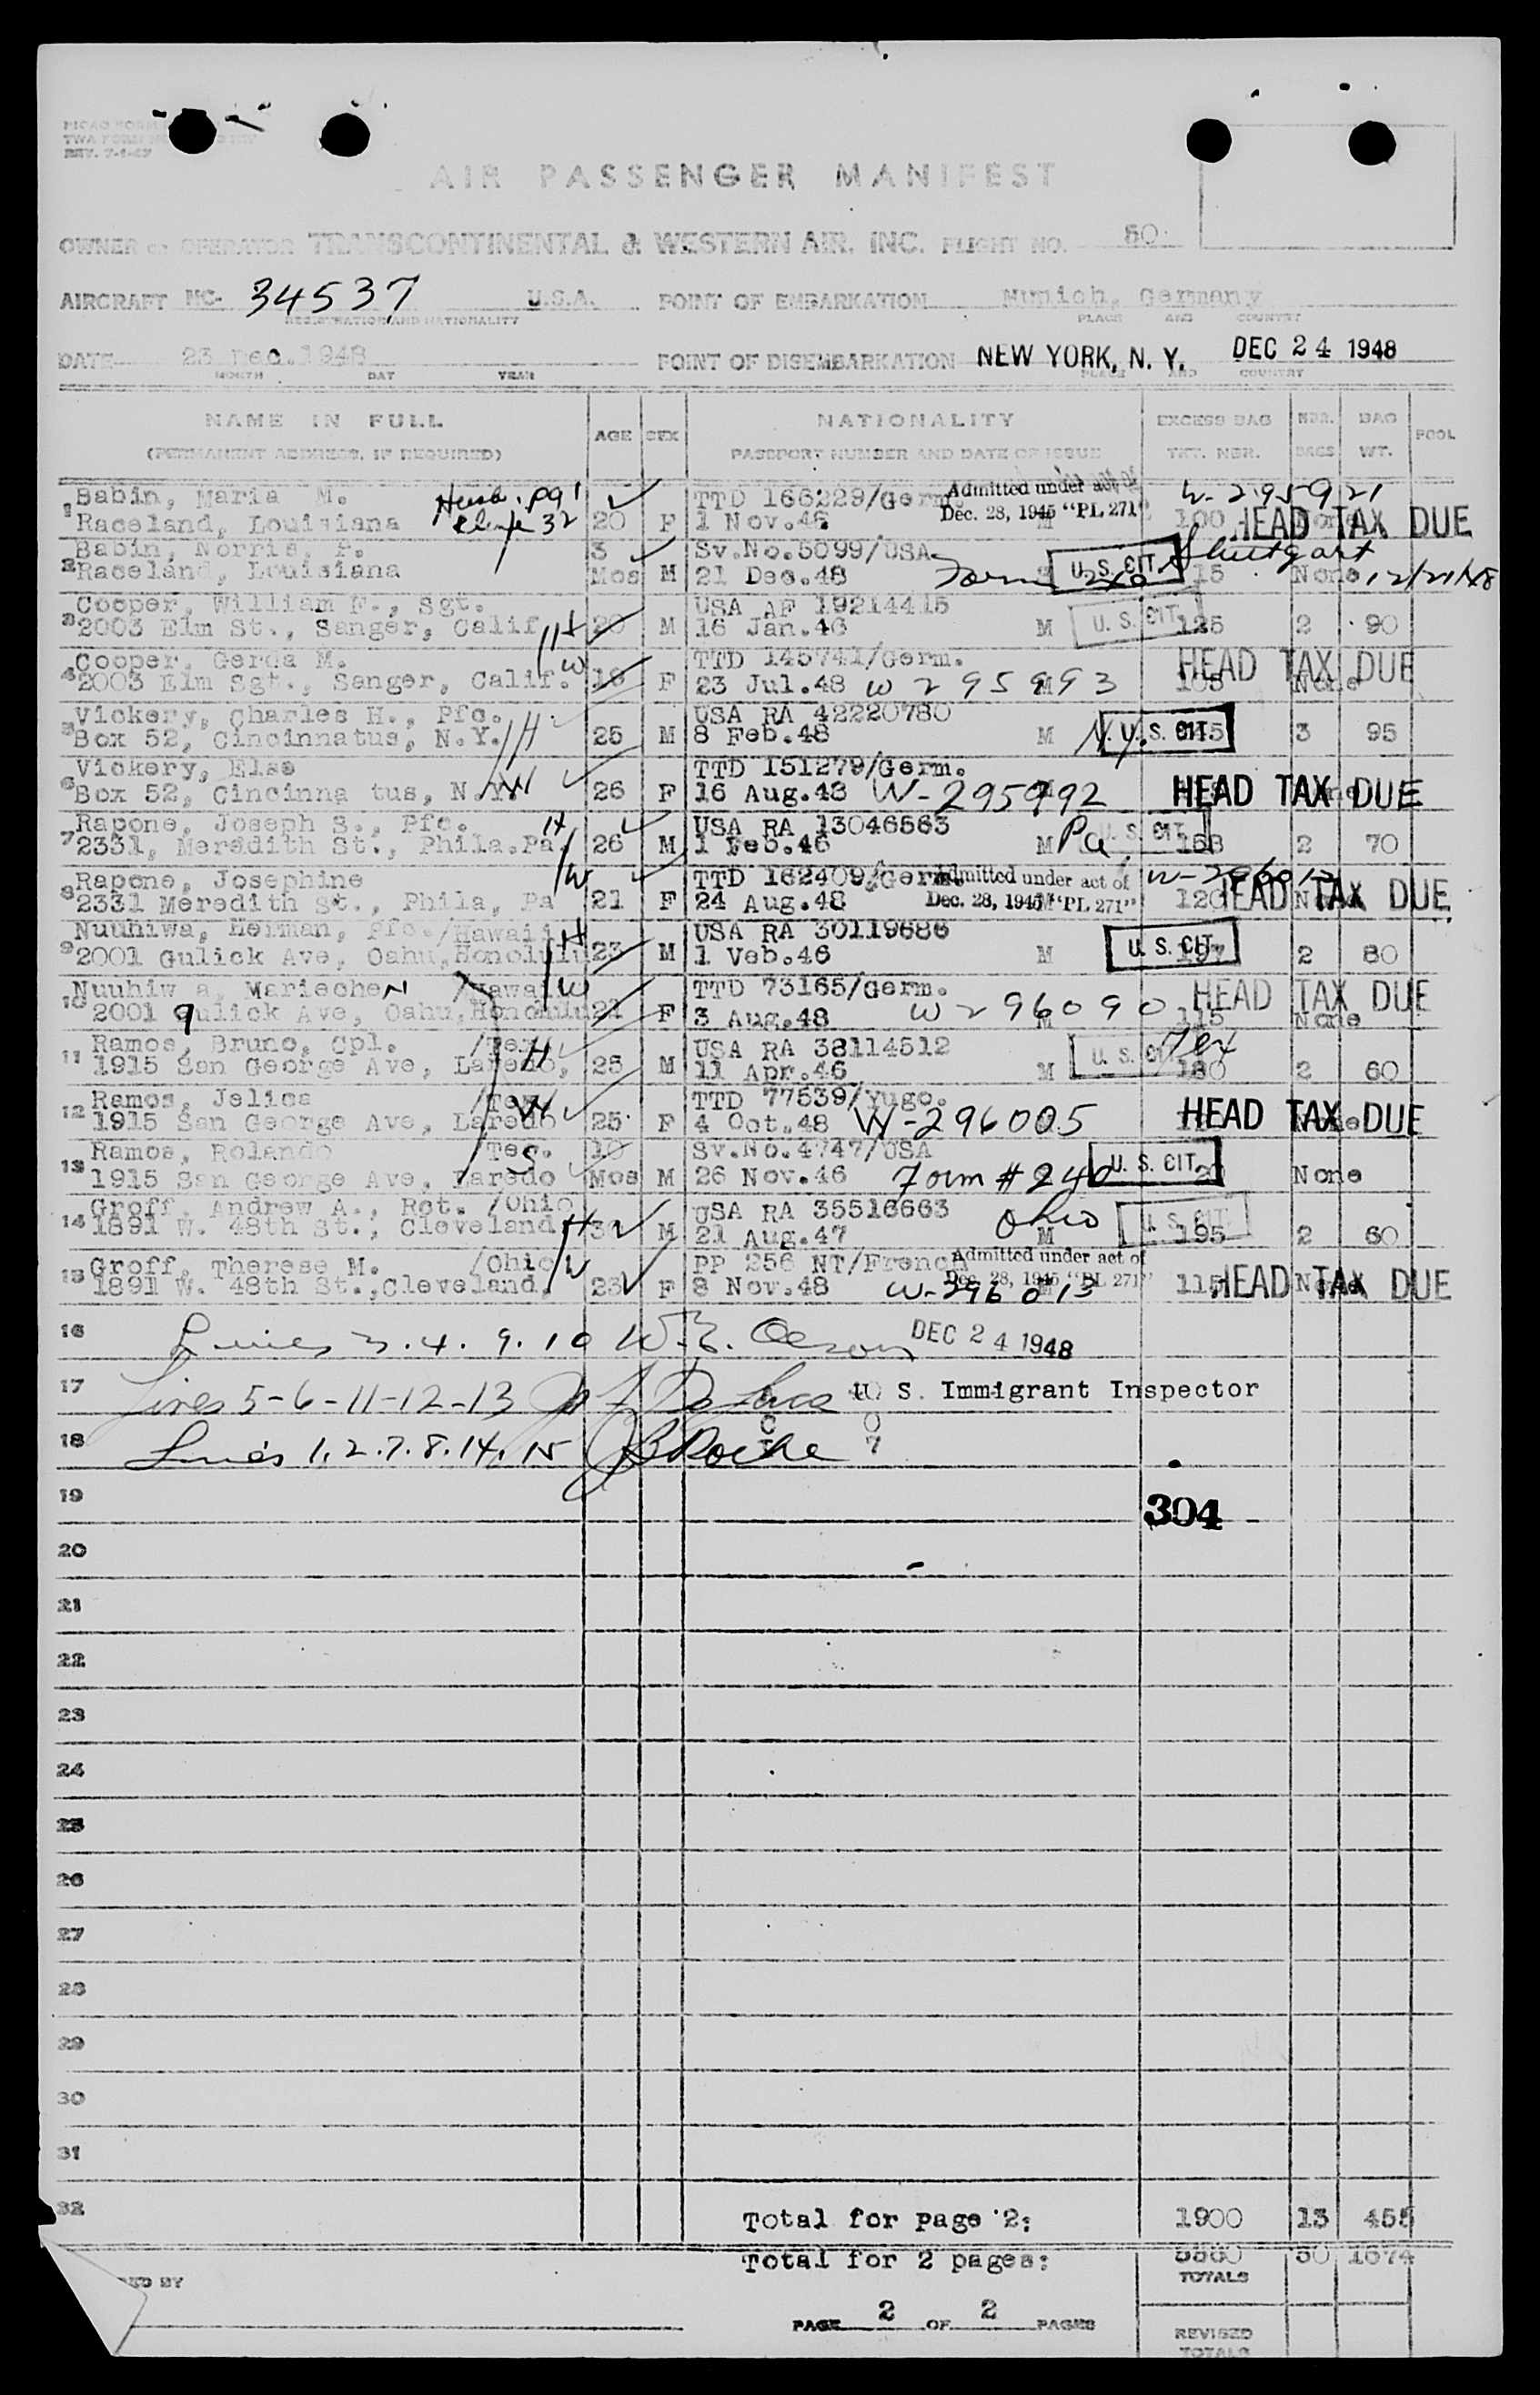 REV. 7-1-47
AIR PASSENGER MANIFEST
OWNER or OPERATOR TRANSCONTINENTAL & WESTERN AIR, INC. FLIGHT NO. 80
AIRCRAFT NC- 34537 U.S.A. POINT OF EMBARKATION Munich, Germany
REGISTRATION AND NATIONALITY PLACE AND COUNTRY
DATE 23 Dec. 1948 POINT OF DISEMBARKATION NEW YORK, N. Y. DEC 24 1948
MONTH DAY YEAR PLACE AND COUNTRY
NAME IN FULL AGE SEX NATIONALITY EXCESS BAG NBR. BAG POOL
(PERMANENT ADDRESS, IF REQUIRED) PASSPORT NUMBER AND DATE OF ISSUE TKT. NBR. BAGS WT.
1 Babin, Maria M. Husb. pg 1 TTD 166229/Germ. Admitted under act of W-295921
Raceland, Louisiana line 32 20 F 1 Nov.48 Dec. 28, 1945 "PL 271" M 100 None HEAD TAX DUE
2 Babin, Norris, P. 3 Sv.No.5099/USA Stuttgart
Raceland, Louisiana Mos M 21 Dec.48 Form 240 U. S. CIT. 15 None 12/21/48
3 Cooper, William F., Sgt. USA AF 19214415
2003 Elm St., Sanger, Calif H 20 M 16 Jan.46 M U. S. CIT. 125 2 90
4 Cooper, Gerda M. W TTD 145741/Germ. HEAD TAX DUE
2003 Elm Sgt., Sanger, Calif. F 23 Jul.48 W 295993 M None
5 Vickery, Charles H., Pfc. USA RA 42220780
Box 52, Cincinnatus, N.Y. H 25 M 8 Feb.48 M N.Y. U. S. CIT. 3 95
6 Vickery, Else TTD 151279/Germ.
Box 52, Cincinna tus, N.Y. W 26 F 16 Aug.48 W-295992 HEAD TAX DUE
7 Rapone, Joseph S., Pfc. H USA RA 13046563
2331, Meredith St., Phila.Pa. 26 M 1 Feb.46 M Pa. U. S. CIT. 2 70
8 Rapone, Josephine W TTD 162409/Germ. Admitted under act of
2331 Meredith St., Phila, Pa 21 F 24 Aug.48 Dec. 28, 1945 "PL 271" 120 HEAD TAX DUE
9 Nuuhiwa, Herman, Pfc. /Hawaii H USA RA 30119686
2001 Gulick Ave, Oahu, Honolulu 23 M 1 Veb.46 M U. S. CIT. 2 80
10 Nuuhiw a, Mariechen /Hawaii W TTD 73165/Germ. HEAD TAX DUE
2001 Gulick Ave, Oahu, Honolulu 21 F 3 Aug.48 W 296090 M 115 None
11 Ramos, Bruno, Cpl. /Tex. H USA RA 38114512 Tex
1915 San George Ave, Laredo, 25 M 11 Apr.46 M U. S. CIT. 180 2 60
12 Ramos, Jelica /Tex. W TTD 77539/Yugo.
1915 San George Ave, Laredo 25 F 4 Oct.48 W-296005 HEAD TAX DUE
13 Ramos, Rolando /Tec. S 10 Sv.No.4747/USA
1915 San George Ave, Laredo Mos M 26 Nov.46 Form # 240 U. S. CIT. 20 None
14 Groff, Andrew A., Rct. /Ohio USA RA 35516663 Ohio
1891 W. 48th St., Cleveland, H M 21 Aug.47 M U. S. CIT. 195 2 60
15 Groff, Therese M. /Ohio W PP 256 NT/French Admitted under act of
1891 W. 48th St., Cleveland, 23 F 8 Nov.48 W-296013 Dec. 28, 1945 "PL 271" M 115 None HEAD TAX DUE
16 Lines 3.4. 9.10 DEC 24 1948
17 Lines 5-6-11-12-13 U S. Immigrant Inspector
18 Lines 1.2.7.8.14.15 Roche 7
19
304
20
21
22
23
24
25
26
27
28
29
30
31
32
Total for page 2: 1900 13 455
Total for 2 pages: 50 1674
TOTALS
BY
PAGE 2 OF 2 PAGES
REVISED
TOTALS